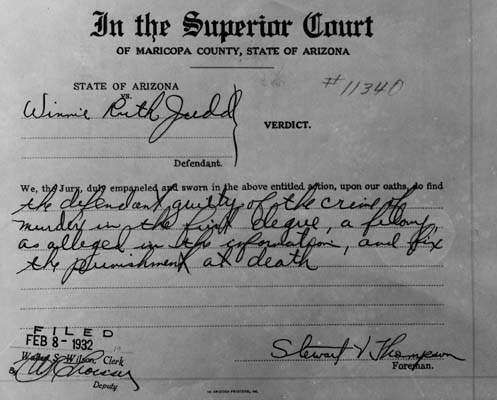 In the Superior Court
OF MARICOPA COUNTY, STATE OF ARIZONA
#11340
STATE OF ARIZONA
vs.
Winnie Ruth Judd
VERDICT.
Defendant.
We, the Jury, duly empaneled and sworn in the above entitled action, upon our oaths, do find
the defendant guilty of the crime of
murder in the first degree, a felony,
as alleged in the information, and fix
the punishment at death
FILED
FEB 8 - 1932
Walter S. Wilson, Clerk
By
Deputy
Stewart V Thompson
Foreman.